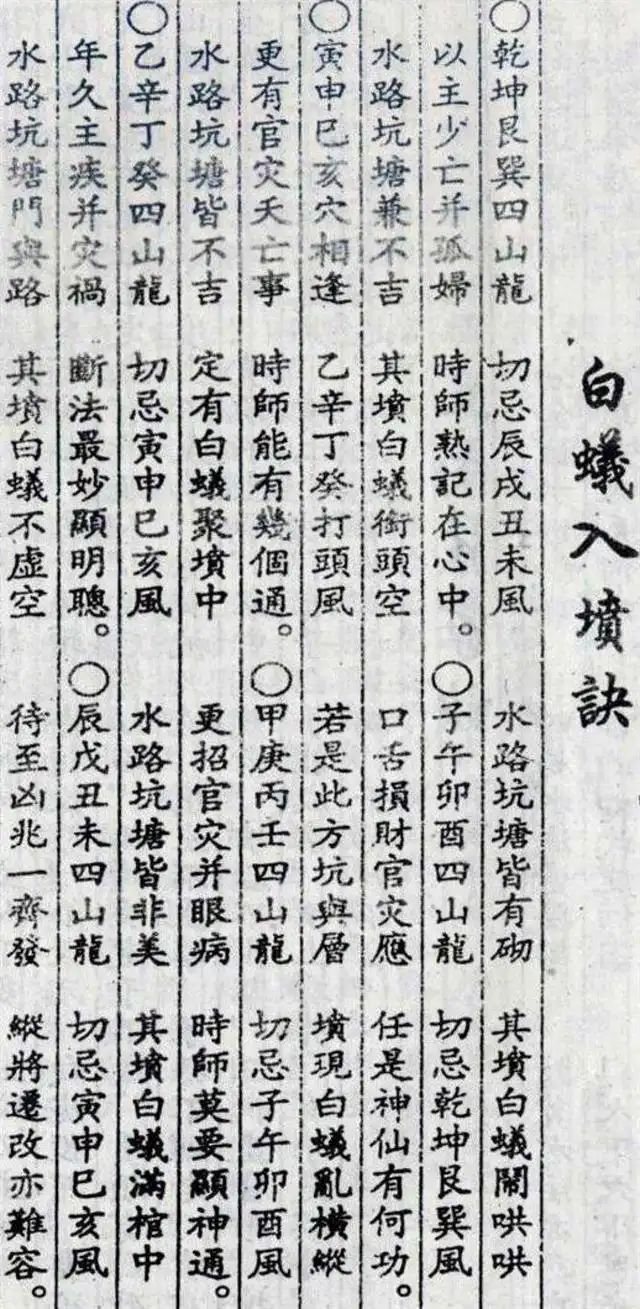 白蟻入墳訣
○乾坤艮巽四山龍 切忌辰戌丑未風 水路坑塘皆有砌 其墳白蟻鬧哄哄
以主少亡并孤婦 時師熟記在心中。○子午卯酉四山龍 切忌乾坤艮巽風
水路坑塘兼不吉 其墳白蟻銜頭空 口舌損財官灾應 任是神仙有何功。
○寅申巳亥穴相逢 乙辛丁癸打頭風 若是此方坑與層 墳現白蟻亂橫縱
更有官灾夭亡事 時師能有幾個通。○甲庚丙壬四山龍 切忌子午卯酉風
水路坑塘皆不吉 定有白蟻聚墳中 更招官灾并眼病 時師莫要顯神通。
○乙辛丁癸四山龍 切忌寅申巳亥風 水路坑塘皆非美 其墳白蟻滿棺中
年久主疾并灾禍 斷法最妙顯明聰。○辰戊丑未四山龍 切忌寅申巳亥風
水路坑塘門與路 其墳白蟻不虛空 待至凶兆一齊發 縱將遷改亦難容。